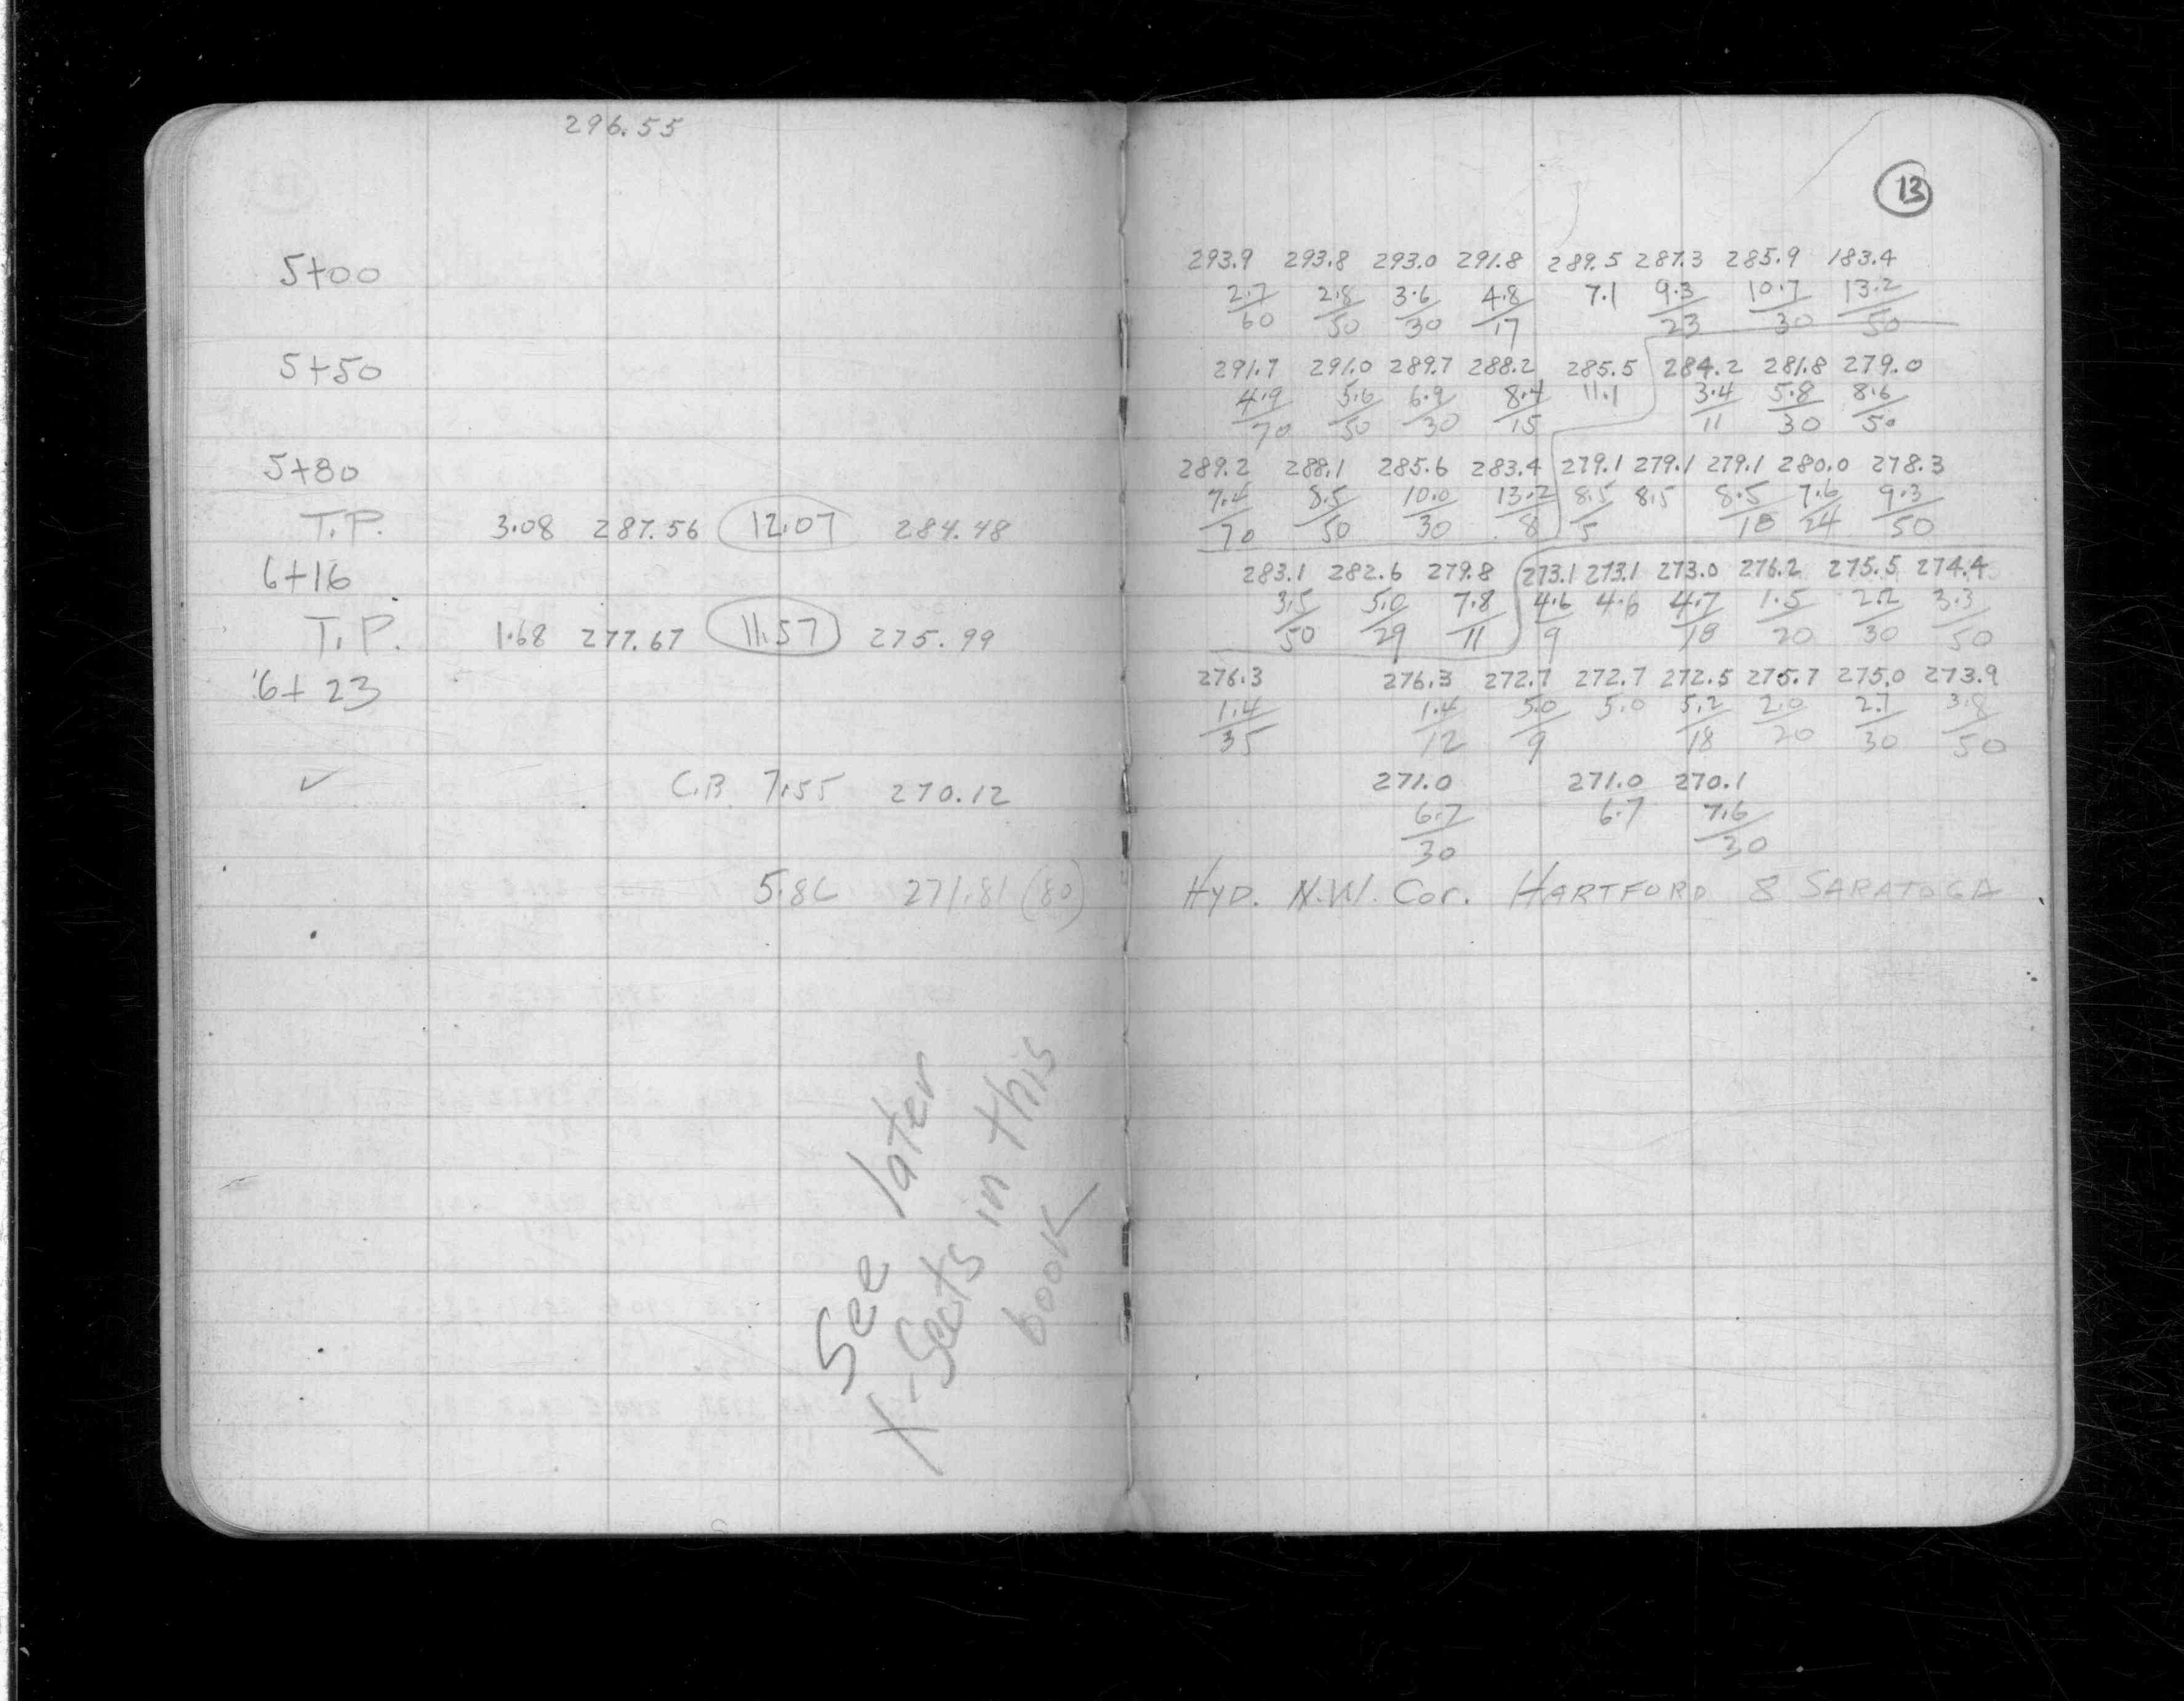 296.55
13
5+00
293.9 293.8 293.0 291.8 289.5 287.3 285.9 183.4
2.7/60 2.8/50 3.6/30 4.8/17 7.1 9.3/23 10.7/30 13.2/50
5+50
291.7 291.0 289.7 288.2 285.5 284.2 281.8 279.0
4.9/70 5.6/50 6.9/30 8.4/15 11.1 3.4/11 5.8/30 8.6/50
5+80
289.2 288.1 285.6 283.4 279.1 279.1 279.1 280.0 278.3
7.4/70 8.5/50 10.0/30 13.2/8 8.5/5 8.5 8.5/18 7.6/24 9.3/50
T.P. 3.08 287.56 12.07 284.48
6+16
283.1 282.6 279.8 273.1 273.1 273.0 276.2 275.5 274.4
3.5/50 5.0/29 7.8/11 4.6/9 4.6 4.7/18 1.5/20 2.2/30 3.3/50
T.P. 1.68 277.67 11.57 275.99
6+23
276.3 276.3 272.7 272.7 272.5 275.7 275.0 273.9
1.4/35 1.4/12 5.0/9 5.0 5.2/18 2.0/20 2.7/30 3.8/50
✓ C.B. 7.55 270.12
271.0 271.0 270.1
6.7/30 6.7 7.6/30
5.86 271.81 (80) HYD. N.W. Cor. HARTFORD & SARATOGA
See later
X-Sects in this
book